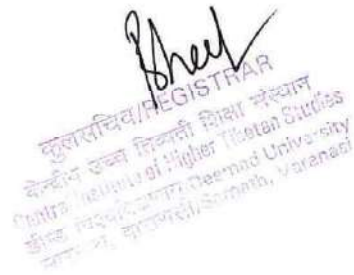 कुलसचिव/REGISTRAR
केन्द्रीय उच्च तिब्बती शिक्षा संस्थान
Central Institute of Higher Tibetan Studies
Deemed University
वाराणसी/Sarnath, Varanasi